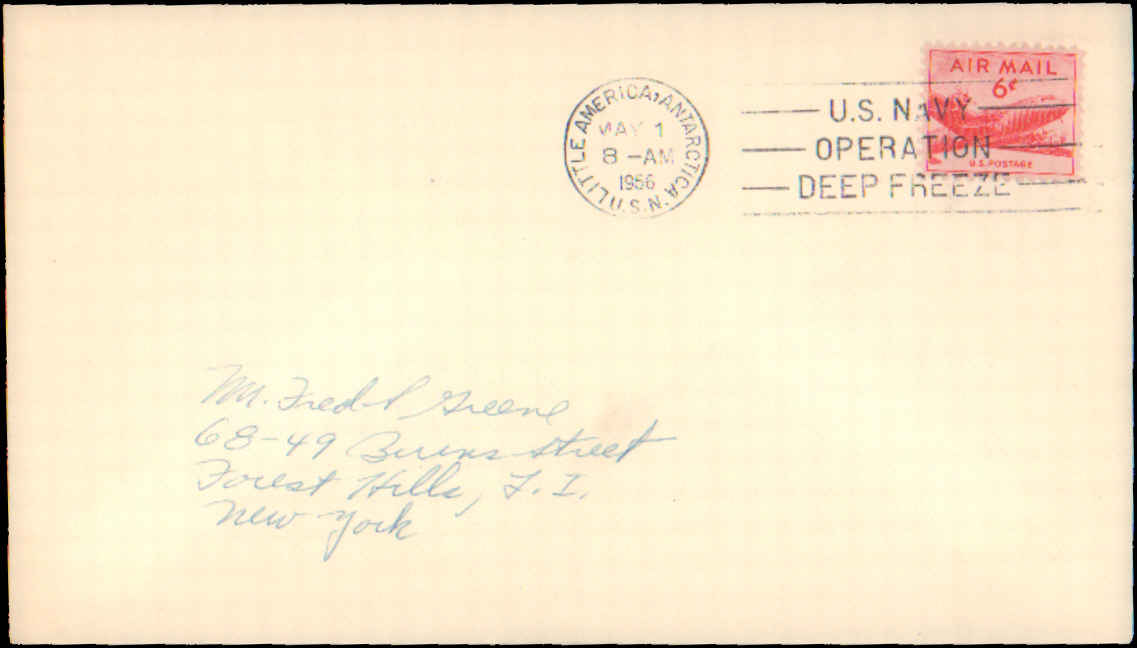 AIR MAIL
6¢
U.S. POSTAGE
LITTLE AMERICA, ANTARCTICA U.S.N.
MAY 1
8 -AM
1956
U.S. NAVY
OPERATION
DEEP FREEZE
Mr. Fred P Greene
68-49 Burns Street
Forest Hills, L. I.
New York